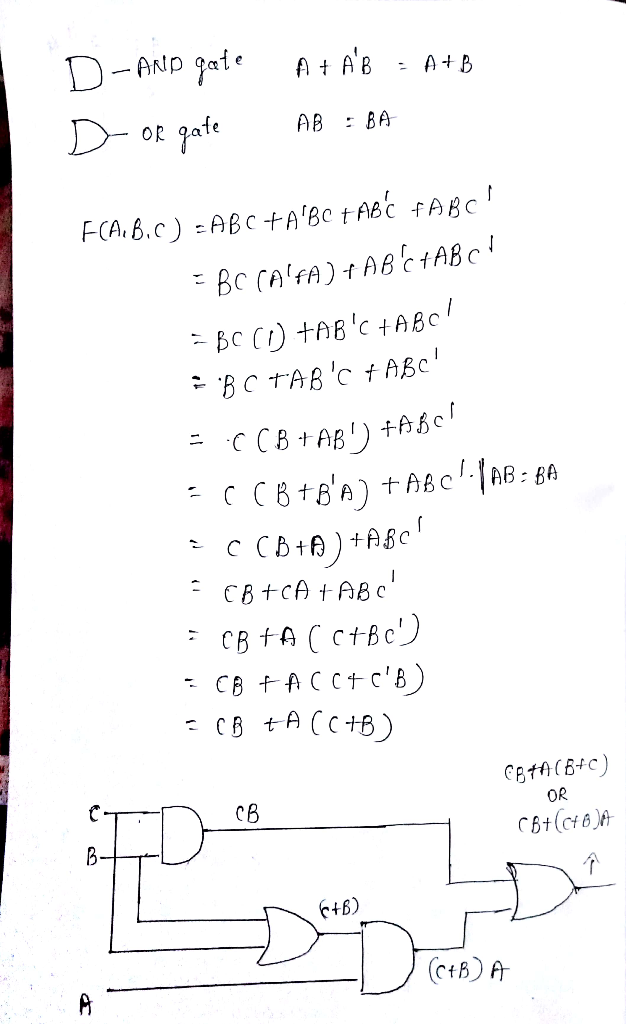 D - AND gate A + A'B = A+B
D - OR gate AB = BA
F(A,B,C) = ABC + A'BC + AB'C + ABC'
= BC (A'+A) + AB'C + ABC'
= BC (1) + AB'C + ABC'
= BC + AB'C + ABC'
= C (B + AB') + ABC'
= C (B + B'A) + ABC' | AB = BA
= C (B+A) + ABC'
= CB + CA + ABC'
= CB + A (C+BC')
= CB + A (C+C'B)
= CB + A (C+B)
CB+A(B+C)
OR
CB+(C+B)A
C CB
B
(C+B)
(C+B) A
A